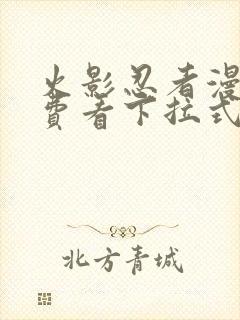 火影忍者漫
费看下拉式
北方青城